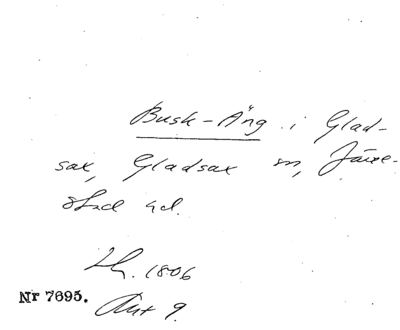 Busk-Äng i Glad-
sax, Gladsax sn, Järre-
stad hd.
Lh. 1806
Nr 7695.
Akt 9.